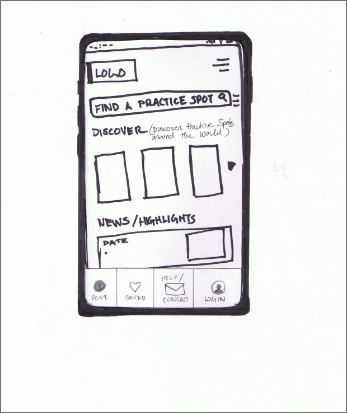 LOGO
FIND A PRACTICE SPOT
DISCOVER (Discover Practice Spots
around the World)
NEWS/HIGHLIGHTS
DATE
HELP/
POST SAVED CONTACT LOGIN